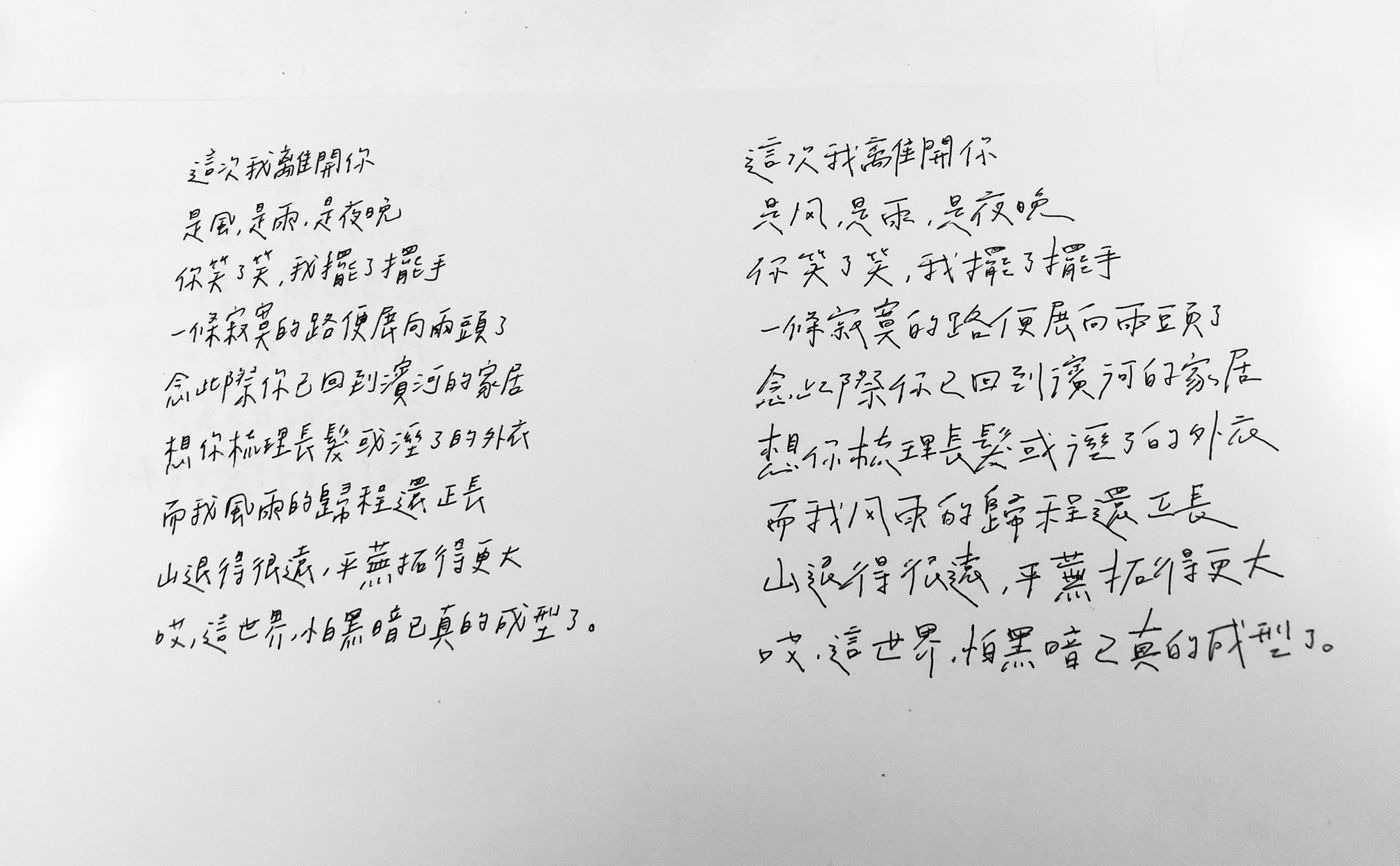 這次我離開你
是風,是雨,是夜晚
你笑了笑,我擺了擺手
一條寂寞的路便展向兩頭了
念此際你已回到濱河的家居
想你梳理長髮或溼了的外衣
而我風雨的歸程還正長
山退得很遠,平蕪拓得更大
哎,這世界,怕黑暗已真的成型了。
這次我離開你
是风,是雨,是夜晚
你笑了笑,我擺了擺手
一條寂寞的路便展向兩頭了
念此際你已回到濱河的家居
想你梳理長髮或溼了的外衣
而我风雨的歸程還正長
山退得很遠,平蕪拓得更大
哎,這世界,怕黑暗已真的成型了。